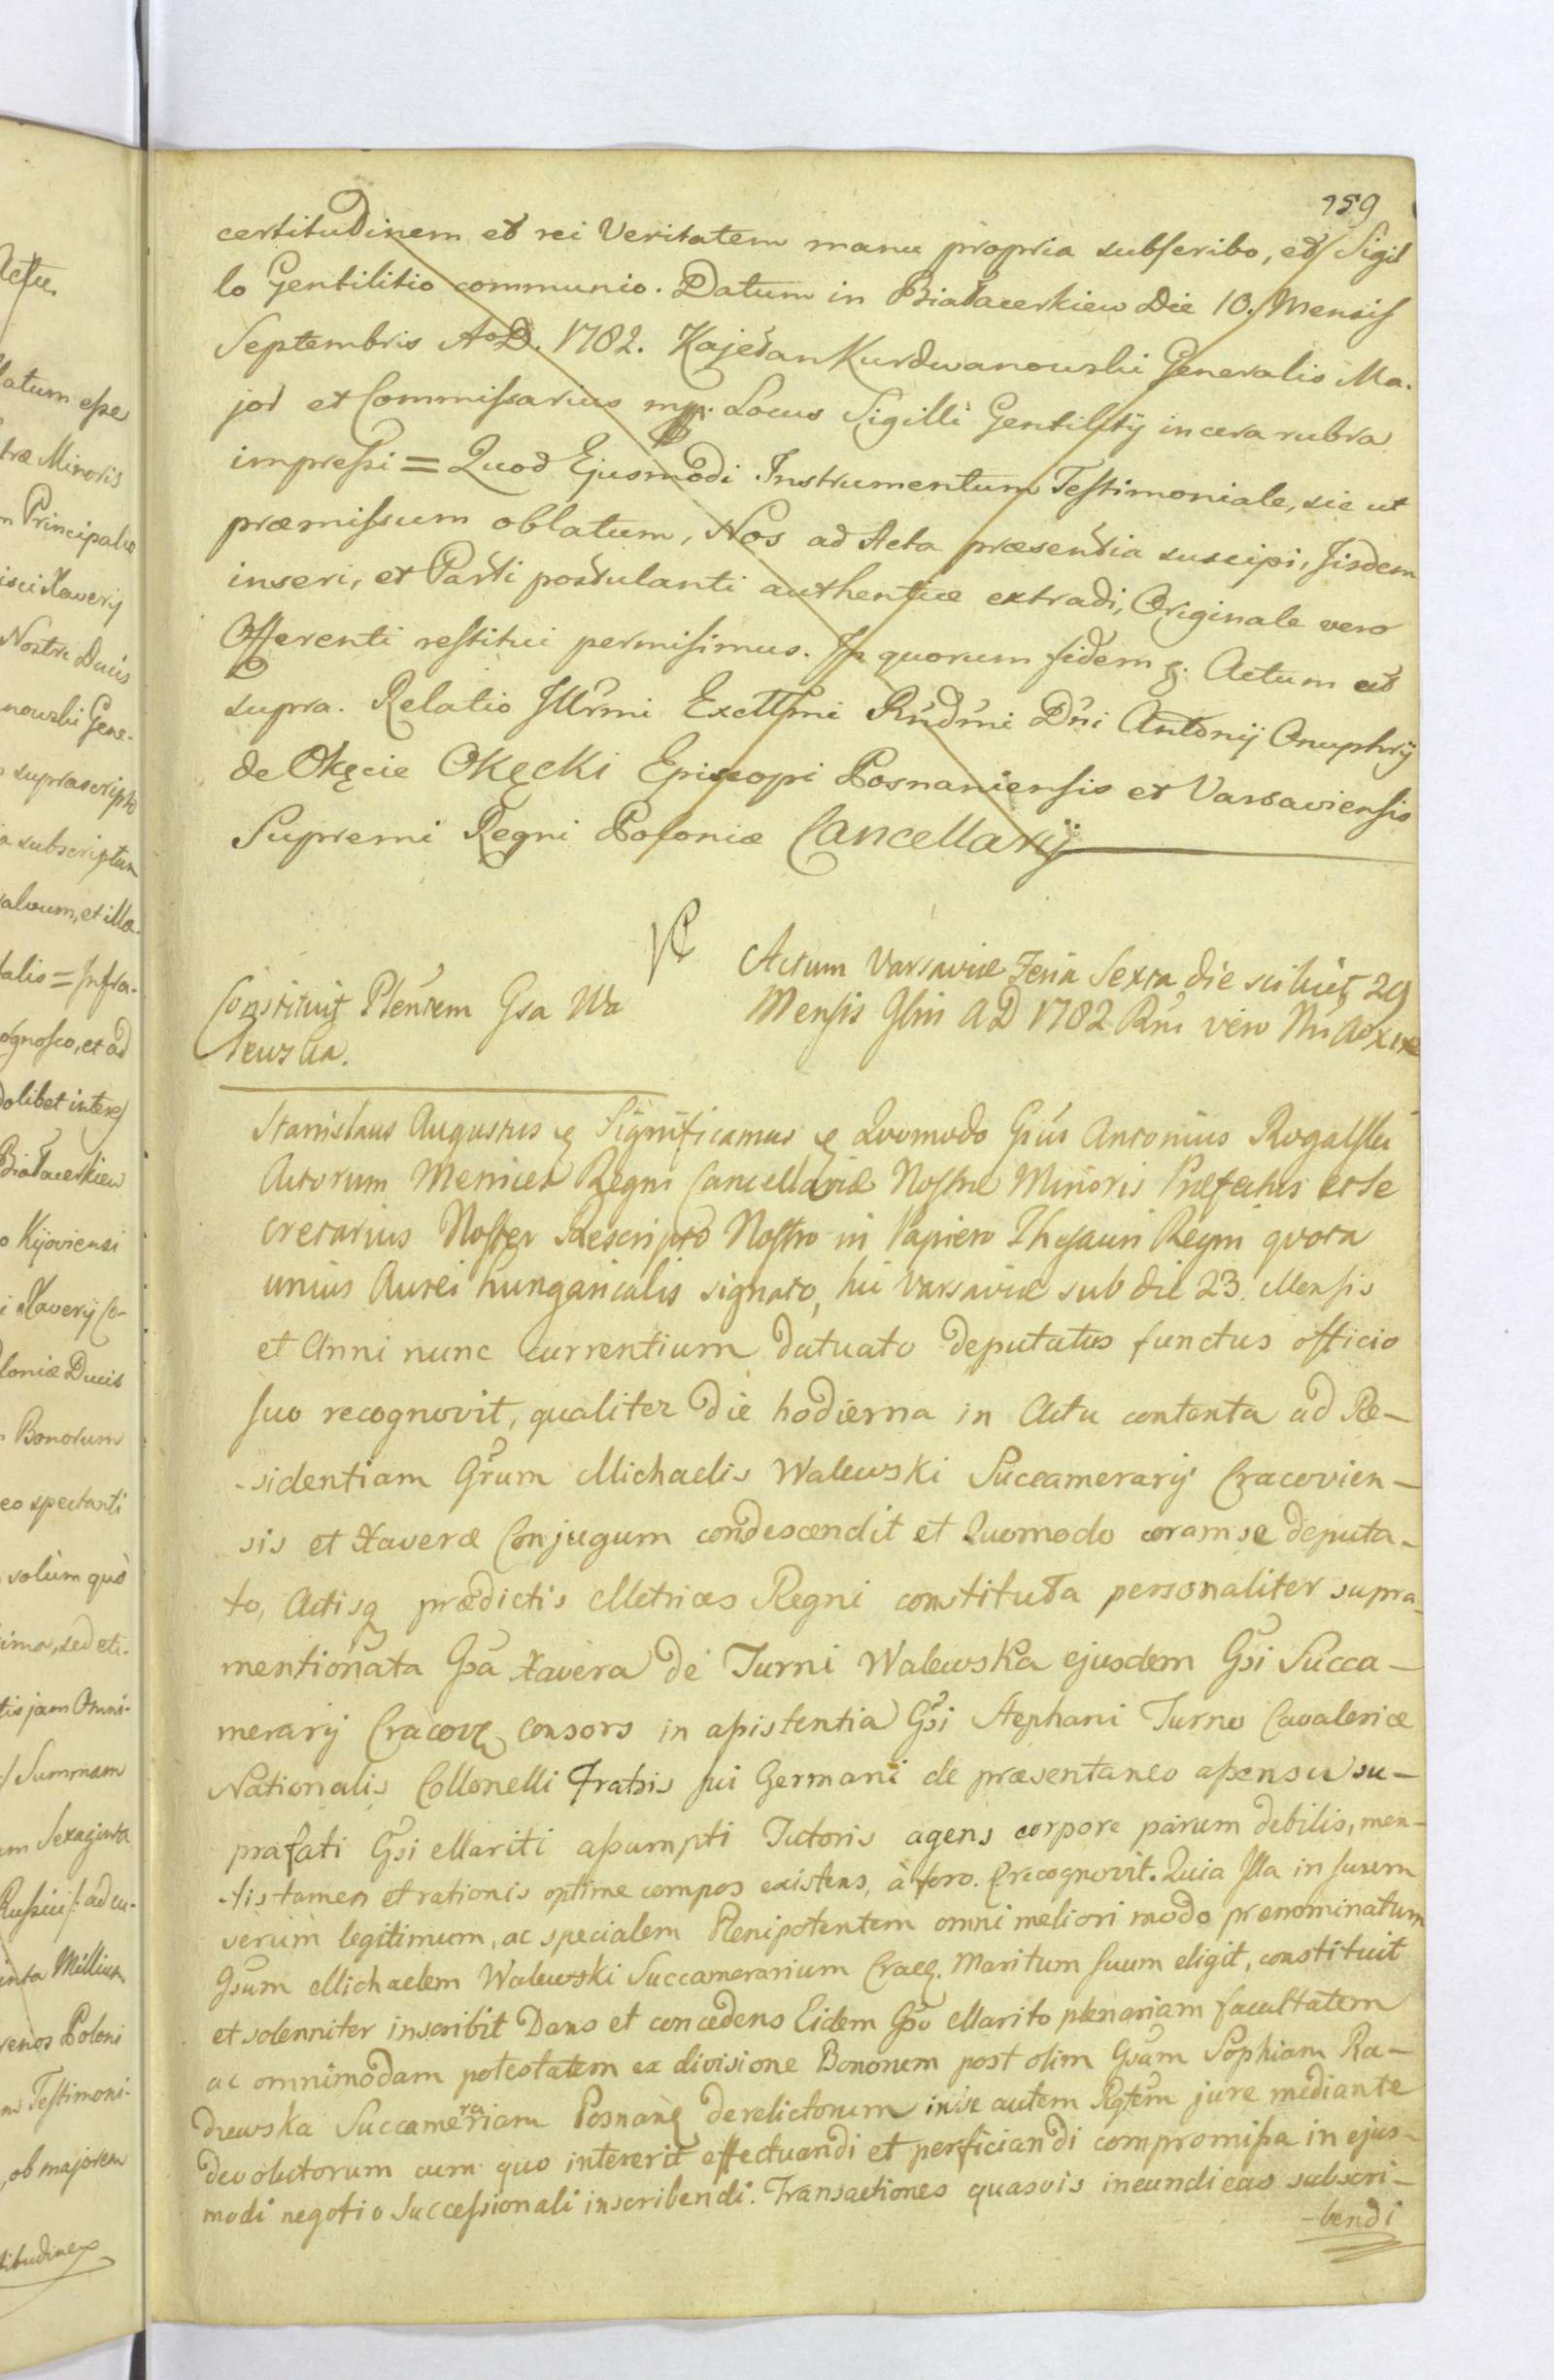 159
certitudinem et rei Veritatem manu propria subscribo, et Sigil
lo Gentilitio communio. Datum in Białacerkiew Die 10. Mensis
Septembris AoD. 1782. Kajetan Kurdwanowski Generalis Ma.
jor et Commissarius mp. Locus Sigilli Gentilitij in cera rubra
impressi = Quod Ejusmodi Instrumentum Testimoniale, sic ut
præmissum oblatum, Nos ad Acta præsentia suscipi, Iisdem
inseri, et Parti postulanti authentice extradi, Originale vero
Offerenti restitui permisimus. In quorum fidem &. Actum ut
supra. Relatio Illrmi Excllmi Rndmi Dni Antonij Onuphrij
de Okęcie Okęcki Episcopi Posnaniensis et Varsaviensis
Supremi Regni Poloniæ Cancellarij
Actum Varsaviæ Feria Sexta die scilicet 29
Mensis 9bris AD 1782 Rni vero Nri Ao XIX
Constituit Plentem Gsa Wa
lewska.
Stanislaus Augustus & Significamus & Quomodo Gsus Antonius Rogalski
Actorum Metrices Regni Cancellariæ Nostræ Minoris Præfectus et Se
cretarius Noster Rescripto Nostro in Papiero Thesauri Regni quota
unius Aurei hungaricalis signato, hic Varsaviæ sub die 23. Mensis
et Anni nunc currentium datuato deputatus functus officio
suo recognovit, qualiter die hodierna in Actu contenta ad Re-
-sidentiam Grum Michaelis Walewski Succamerarij Cracovien-
sis et Xaveræ Conjugum condescendit et Quomodo coram se deputa-
to, Actisq prædictis Metrices Regni constituta personaliter supra-
mentionata Gsa Xavera de Turni Walewska ejusdem Gsi Succa-
merarij Cracov consors in assistentia Gsi Stephani Turno Cavaleriæ
Nationalis Collonelli Fratris sui Germani de præsentaneo assensu su-
prafati Gsi Mariti assumpti Tutoris agens corpore parum debilis, men-
-tis tamen et rationis optime compos existens, à foro. Recognovit. Quia Illa in suum
verum legitimum, ac specialem Plenipotentem omni meliori modo prænominatum
Gsum Michaelem Walewski Succamerarium Crac. Maritum suum eligit, constituit
et solenniter inscribit Dans et concedens Eidem Gso Marito plenariam facultatem
ac omnimodam potestatem ex divisione Bonorum post olim Gsam Sophiam Ra-
drewska Succamerariam Posnan derelictorum in se autem Rgtem jure mediante
devolutorum cum quo intererit effectuandi et perficiandi compromissa in ejus-
modi negotio successionali inscribendi. Transactiones quasvis ineundi eas subscri-
-bendi